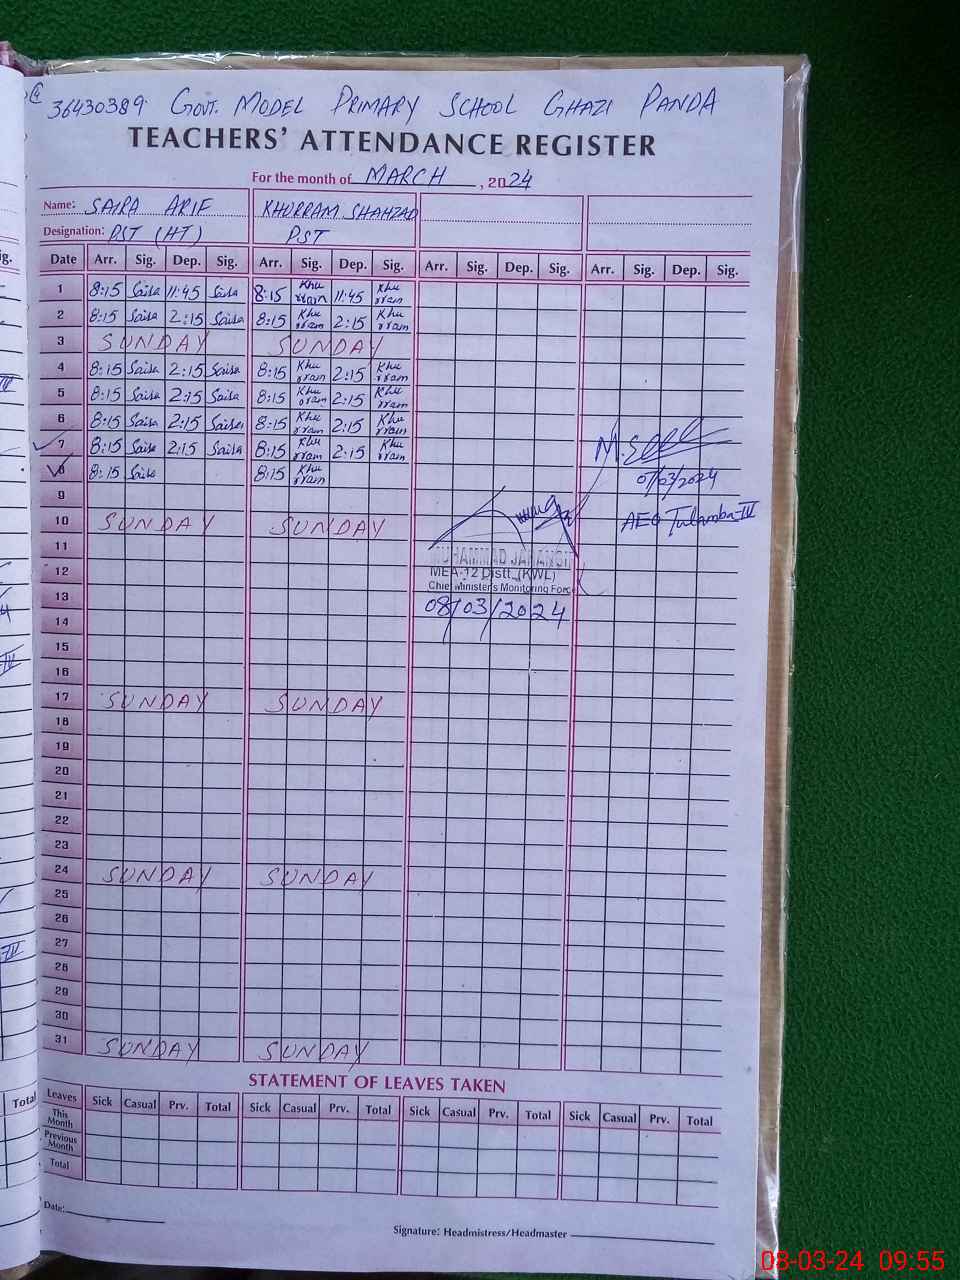 36430389. GOVT. MODEL PRIMARY SCHOOL GHAZI PANDA
TEACHERS' ATTENDANCE REGISTER
For the month of MARCH, 2024
Name: SAIRA ARIF KHURRAM SHAHZAD
Designation: PST (HT) PST
Date Arr. Sig. Dep. Sig. Arr. Sig. Dep. Sig. Arr. Sig. Dep. Sig. Arr. Sig. Dep. Sig.
1 8:15 Saira 11:45 Saira 8:15 Khurram 11:45 Khurram
2 8:15 Saira 2:15 Saira 8:15 Khurram 2:15 Khurram
3 SUNDAY SUNDAY
4 8:15 Saira 2:15 Saira 8:15 Khurram 2:15 Khurram
5 8:15 Saira 2:15 Saira 8:15 Khurram 2:15 Khurram
6 8:15 Saira 2:15 Saira 8:15 Khurram 2:15 Khurram
7 8:15 Saira 2:15 Saira 8:15 Khurram 2:15 Khurram
8 8:15 Saira 8:15 Khurram
07/03/2024
9
10 SUNDAY SUNDAY
AEO Tulamba-IV
11
MUHAMMAD JAHANGIR
12
MEA-12 Distt. (KWL)
Chief Minister's Monitoring Force
13
08/03/2024
14
15
16
17 SUNDAY SUNDAY
18
19
20
21
22
23
24 SUNDAY SUNDAY
25
26
27
28
29
30
31 SUNDAY SUNDAY
STATEMENT OF LEAVES TAKEN
Total Leaves Sick Casual Prv. Total Sick Casual Prv. Total Sick Casual Prv. Total Sick Casual Prv. Total
This Month
Previous Month
Total
Date:
Signature: Headmistress/Headmaster
08-03-24 09:55